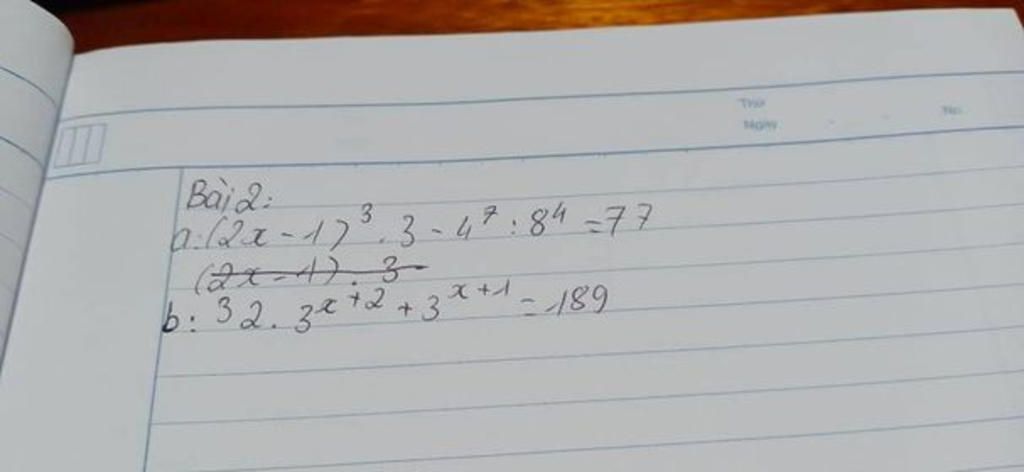 Thứ
Ngày
No.
Bài 2:
a: (2x - 1)³ . 3 - 4⁷ : 8⁴ = 77
(2x - 1) . 3
b: ³2 . 3ˣ⁺² + 3ˣ⁺¹ = 189